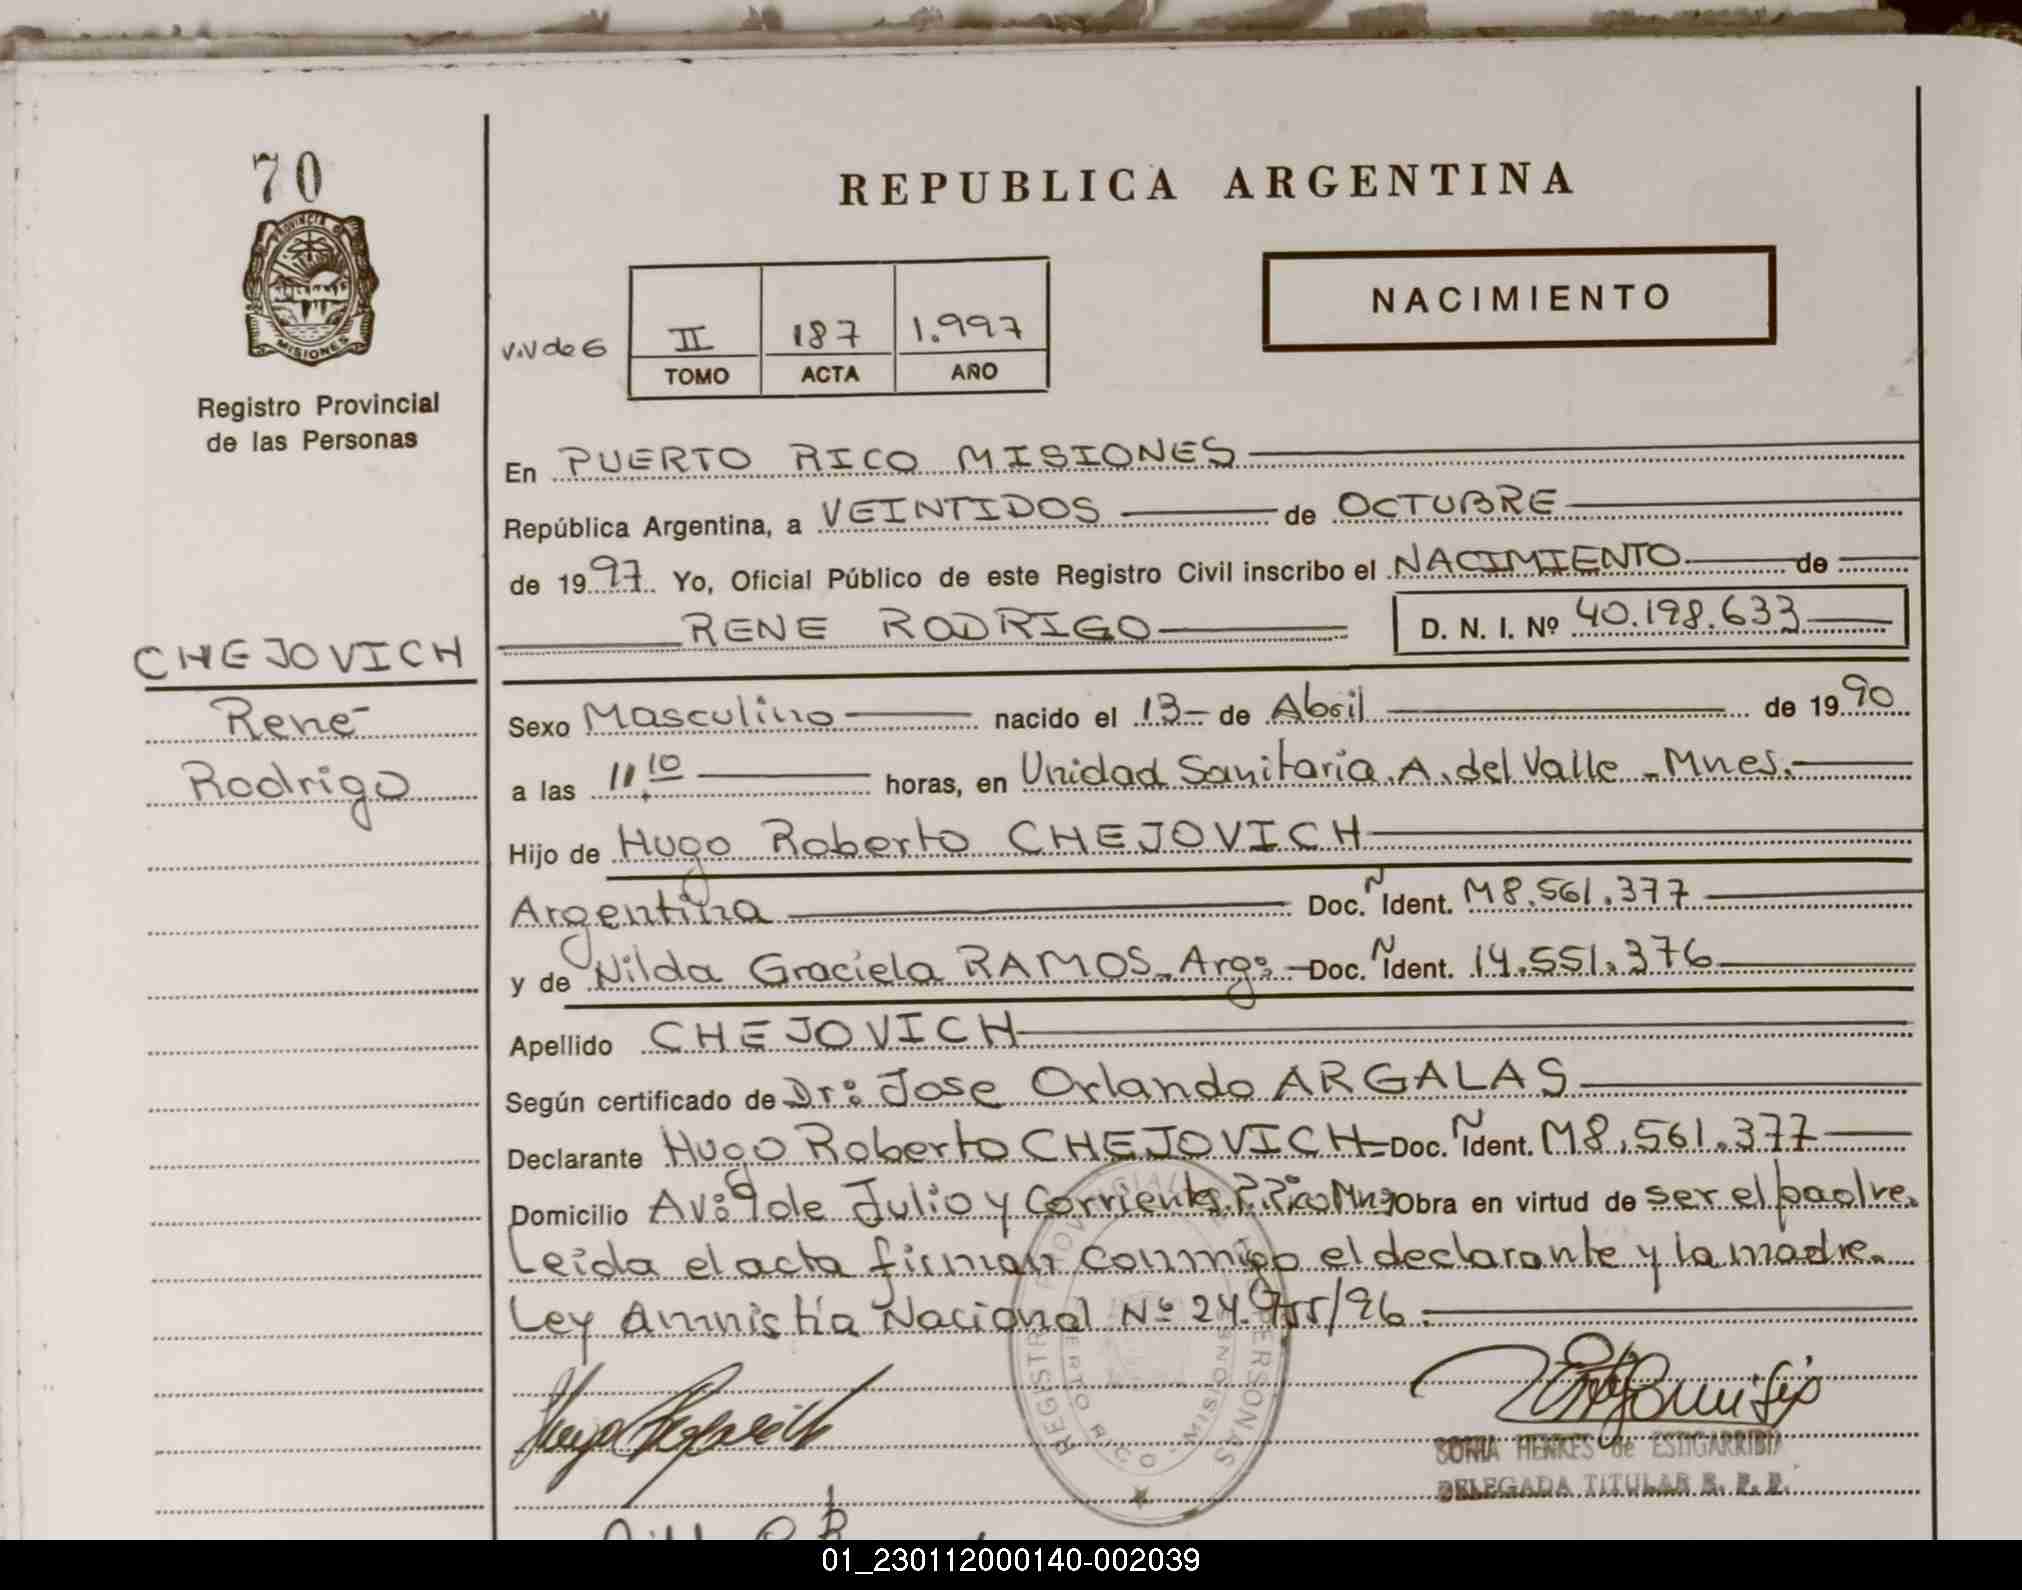 70
PROVINCIA DE
MISIONES
Registro Provincial
de las Personas
CHEJOVICH
René
Rodrigo
REPUBLICA ARGENTINA
II 187 1.997
TOMO ACTA AÑO
NACIMIENTO
En PUERTO RICO MISIONES
República Argentina, a VEINTIDOS de OCTUBRE
de 1997. Yo, Oficial Público de este Registro Civil inscribo el NACIMIENTO de
RENE RODRIGO D. N. I. Nº 40.198.633
Sexo Masculino nacido el 13- de Abril de 1990
a las 11,10 horas, en Unidad Sanitaria A. del Valle - Mnes.
Hijo de Hugo Roberto CHEJOVICH
Argentina Doc. Ident. M8.561.377
y de Nilda Graciela RAMOS - Arg: Doc. Ident. 14.551.376
Apellido CHEJOVICH
Según certificado de Dr: Jose Orlando ARGALAS
Declarante Hugo Roberto CHEJOVICH Doc. Ident. M8.561.377
Domicilio Av: 9 de Julio y Corrientes. P. Rico Mnes Obra en virtud de ser el padre.
Leida el acta firman conmigo el declarante y la madre.
Ley Amnistía Nacional Nº 24.755/96.
REGISTRO PROVINCIAL PERSONAS
PUERTO RICO - MISIONES
SONIA HENKES de ESTIGARRIBIA
DELEGADA TITULAR R. P. P.
01_230112000140-002039